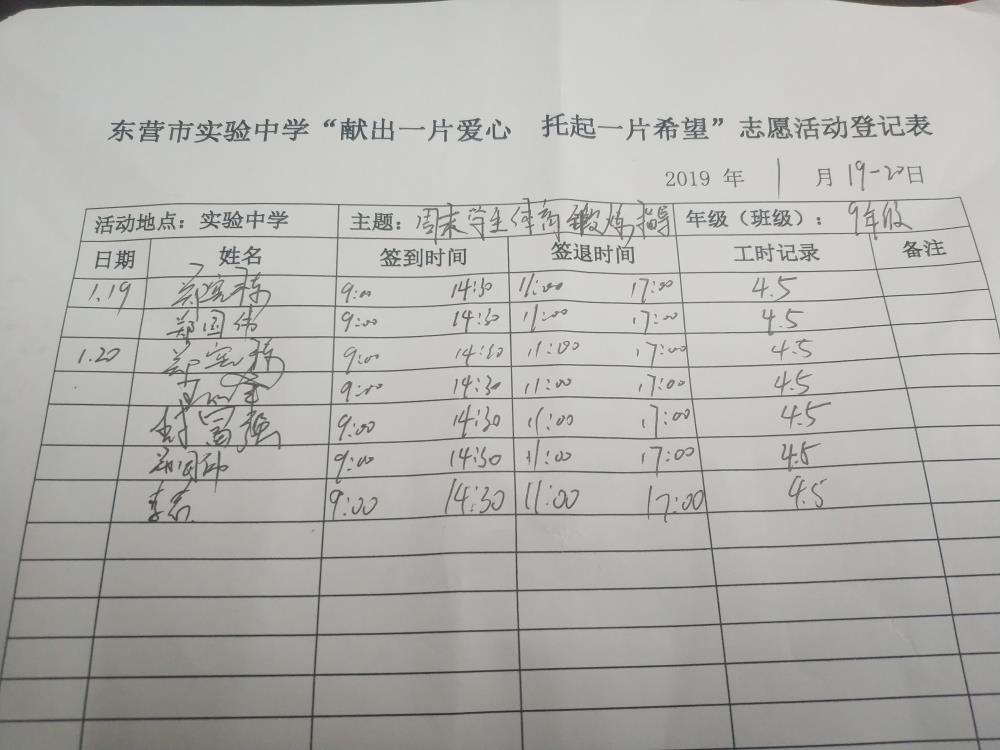 东营市实验中学“献出一片爱心 托起一片希望”志愿活动登记表
2019 年 1 月 19-20日
活动地点：实验中学 主题：周末学生体育锻炼指导 年级（班级）：9年级
日期 姓名 签到时间 签退时间 工时记录 备注
1.19 9:00 14:30 11:00 17:00 4.5
郑国伟 9:00 14:30 11:00 17:00 4.5
1.20 9:00 14:30 11:00 17:00 4.5
9:00 14:30 11:00 17:00 4.5
富强 9:00 14:30 11:00 17:00 4.5
9:00 14:30 11:00 17:00 4.5
9:00 14:30 11:00 17:00 4.5